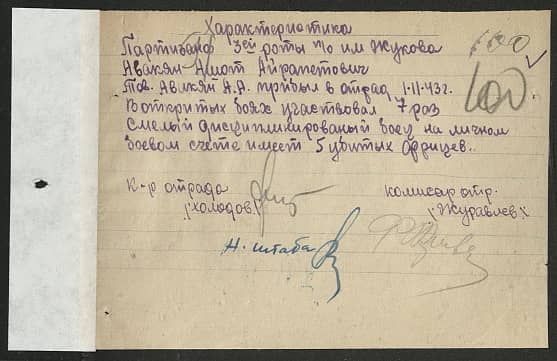 Характеристика
Партизана 3ей роты п/о им Жукова
Авакян Ашот Айрапетович
Тов. Авакян А.А. прибыл в отряд 1-II-43г.
В открытых боях участвовал 7 раз
Смелый дисциплинированый боец на личном
боевом счете имеет 5 убитых фрицев..
к-р отряда
/Холодов/
комисар отр.
/Журавлев/
Н. штаба
100